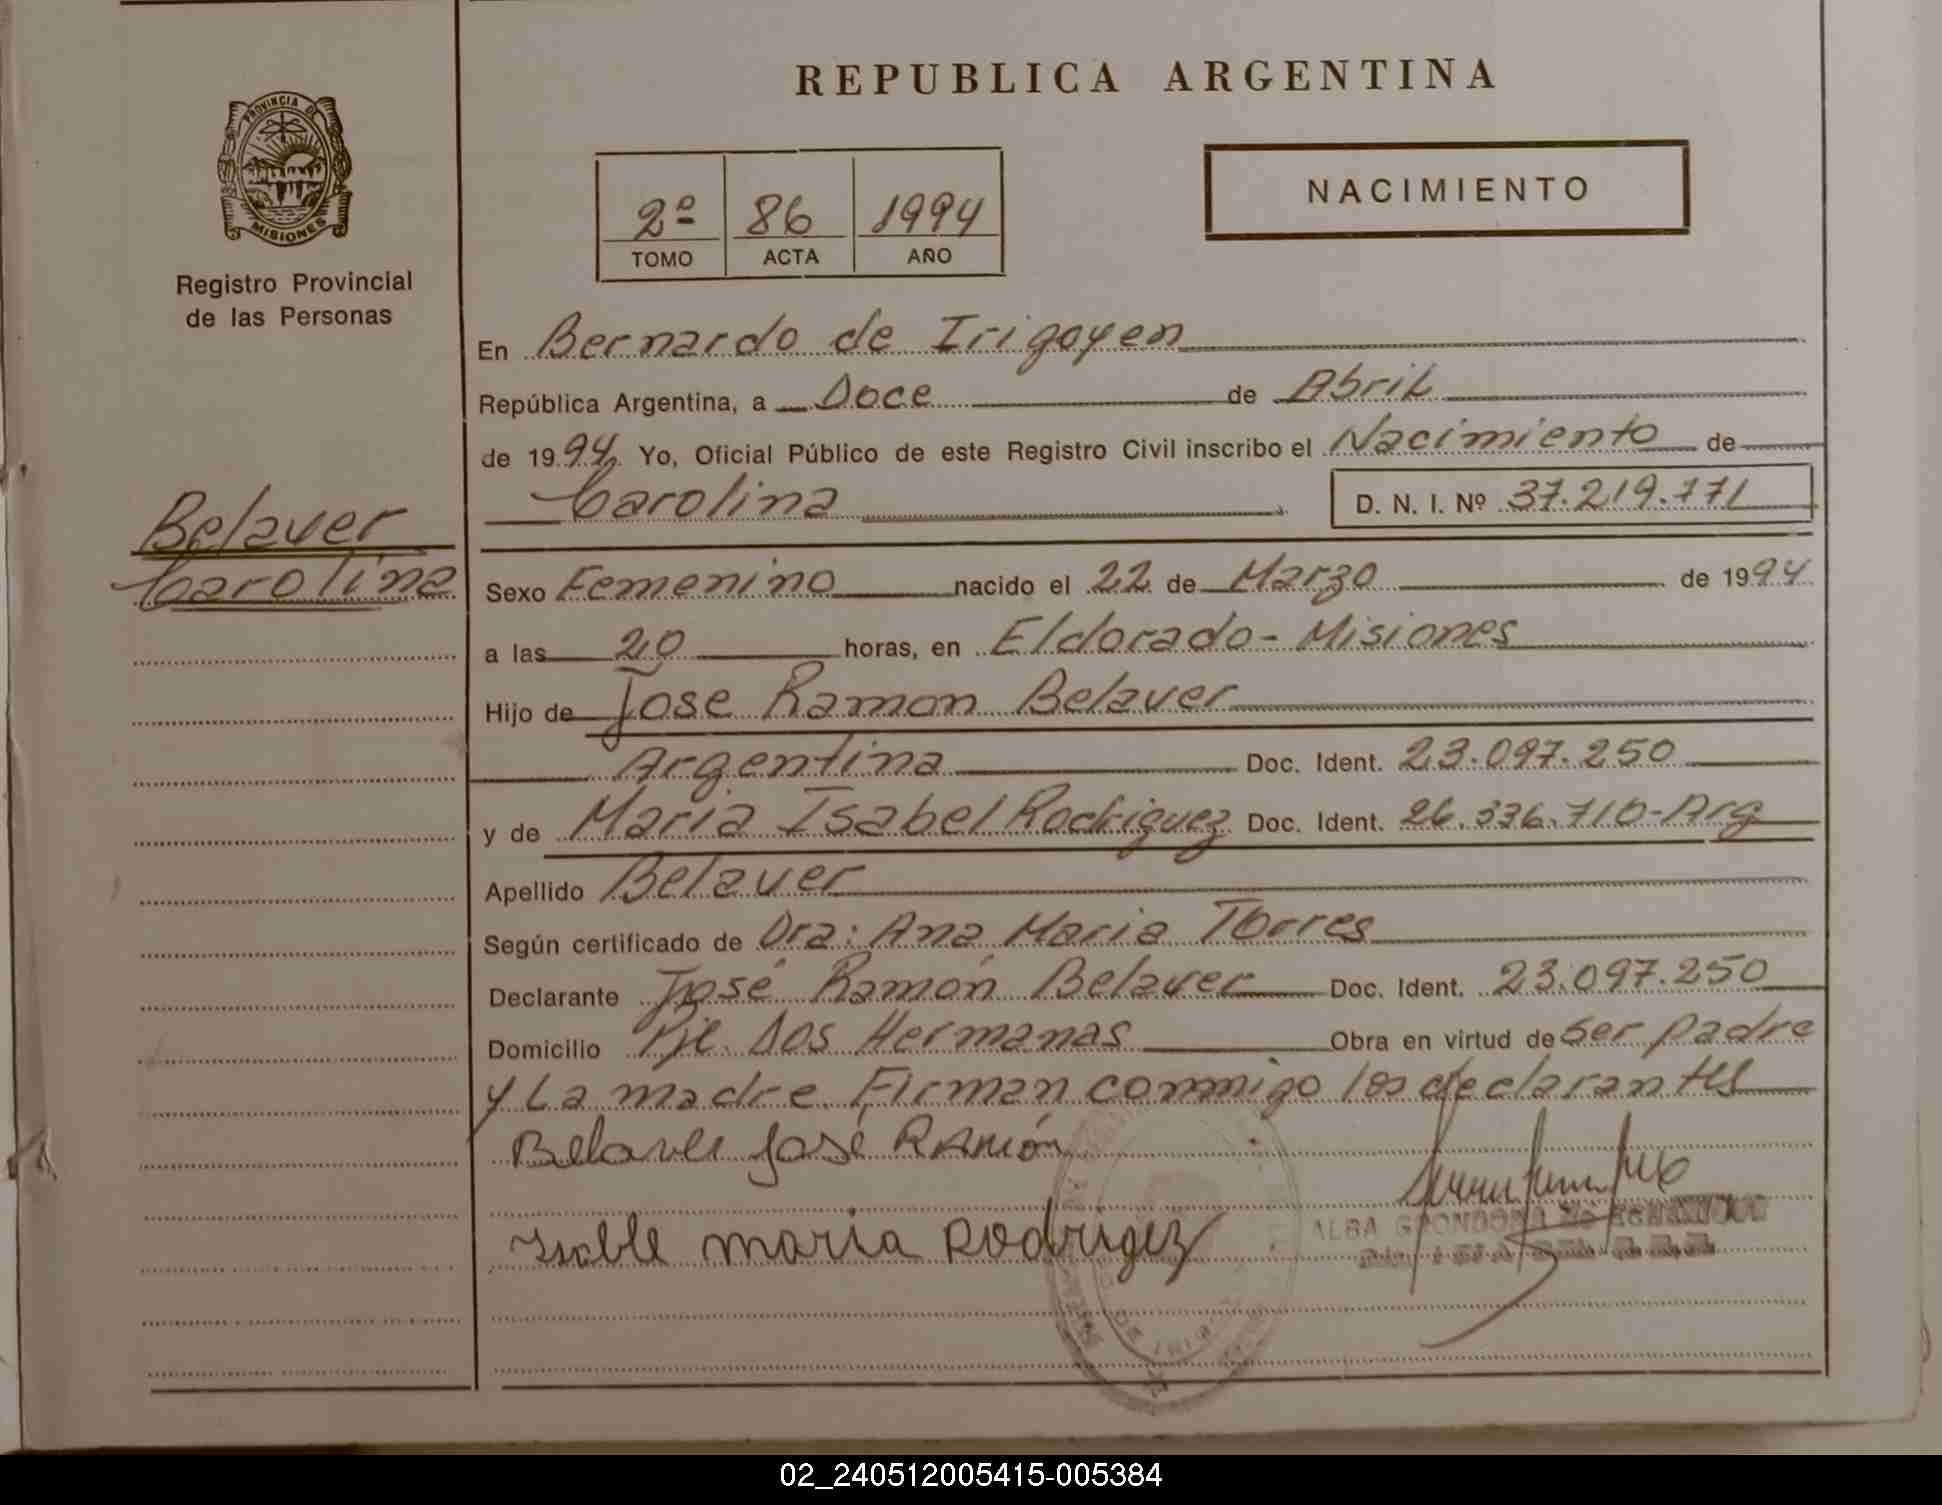 REPUBLICA ARGENTINA
PROVINCIA DE
MISIONES
Registro Provincial
de las Personas
2º 86 1994
TOMO ACTA AÑO
NACIMIENTO
En Bernardo de Irigoyen
República Argentina, a Doce de Abril
de 1994 Yo, Oficial Público de este Registro Civil inscribo el Nacimiento de
Carolina D. N. I. Nº 37.219.771
Belaver
Carolina
Sexo Femenino nacido el 22 de Marzo de 1994
a las 20 horas, en Eldorado - Misiones
Hijo de Jose Ramon Belaver
Argentina Doc. Ident. 23.097.250
y de Maria Isabel Rodriguez Doc. Ident. 26.336.710-Arg
Apellido Belaver
Según certificado de Dra: Ana Maria Torres
Declarante José Ramón Belaver Doc. Ident. 23.097.250
Domicilio Pje. Dos Hermanas Obra en virtud de ser padre
y La madre. Firman conmigo los declarantes
Belaver José Ramón
Isable maria Rodrigez
ALBA
02_240512005415-005384